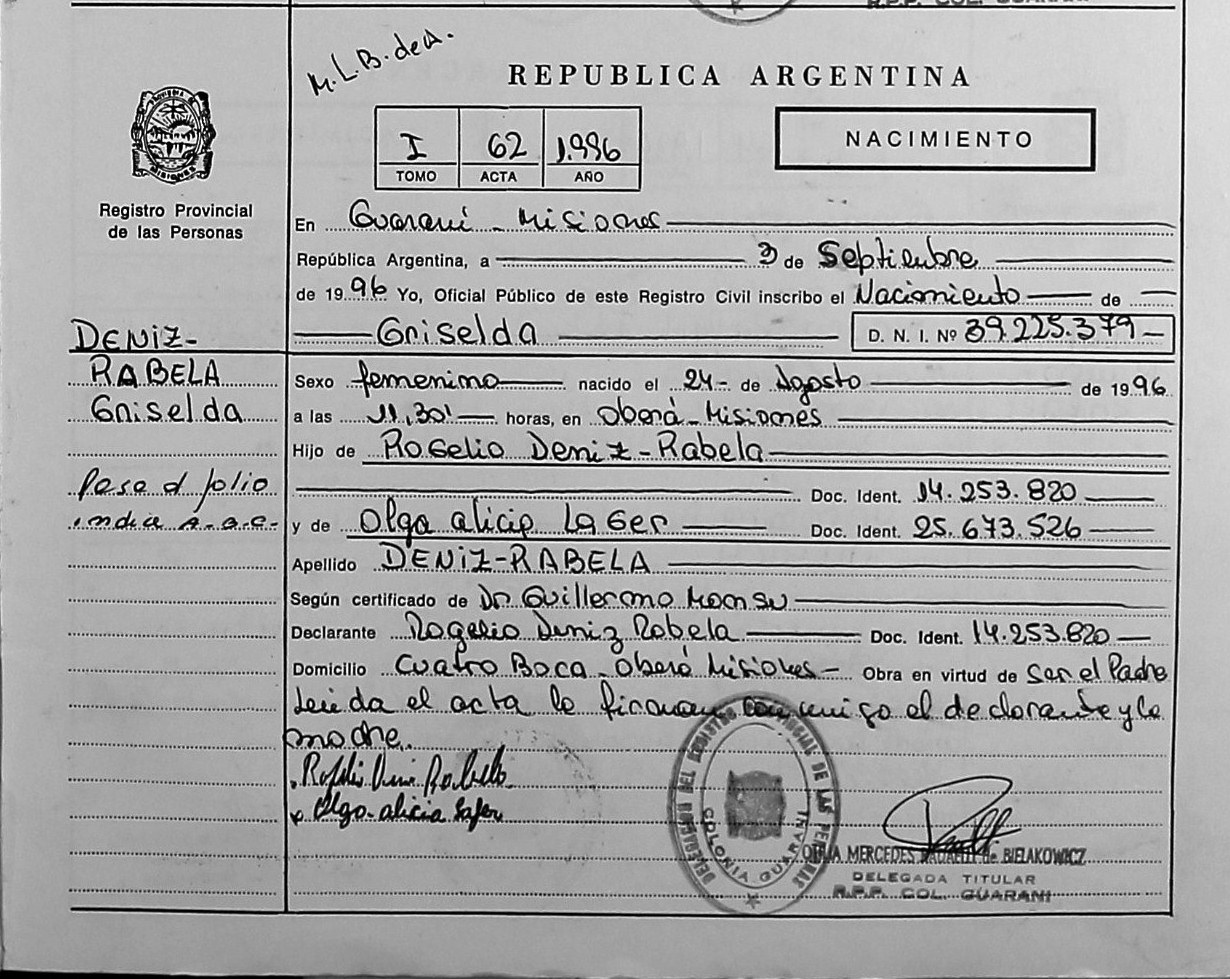 R.P.P. COL. GUARANI
M.L.B. de A.
REPUBLICA ARGENTINA
I 62 1.996
TOMO ACTA AÑO
NACIMIENTO
MISIONES
Registro Provincial
de las Personas
En Guaraní - Misiones
República Argentina, a 3 de Septiembre
de 1996 Yo, Oficial Público de este Registro Civil inscribo el Nacimiento de
Griselda D. N. I. Nº 39.225.379-
DENIZ-
RABELA
Griselda
Pase al folio
indice
Sexo femenino nacido el 24- de Agosto de 1996
a las 11,30' horas, en Oberá - Misiones
Hijo de Rogelio Deniz-Rabela
Doc. Ident. 14.253.820
y de Olga alicia Laser Doc. Ident. 25.673.526
Apellido DENIZ-RABELA
Según certificado de Dr Guillermo
Declarante Rogelio Deniz Rabela Doc. Ident. 14.253.820
Domicilio Cuatro Boca - Oberá Misiones - Obra en virtud de ser el Padre
Leida el acta la firman conmigo el declarante y la
madre.
Olga alicia
DELEGACION DEL REGISTRO PROVINCIAL DE LAS PERSONAS
COLONIA GUARANI
MERCEDES de BIELAKOWICZ
DELEGADA TITULAR
R.P.P. COL. GUARANI